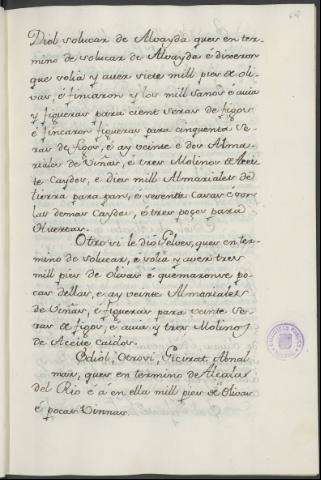 Diól solucar de Alvayda ques en ter-
mino de solucar de Alvayda é dixeron
que solia y aver siete mill pies de oli-
var, é fincaron y los mill sanos é avia
y figueras para cient seras de figos
é fincaron figueras para cinquenta se-
ras de figos, é ay veinte é dos Alma-
rrales de Viñas, é tres Molinos de Acei-
te Caydos, e diez mill Almarrales de
tierra para pan, é sesenta Casas é
las demas Caydas, é tres poços para
Huertas.
Otrosi le dio Gelves, ques en ter-
mino de solucar, e solia y aver tres
mill pies de Olivar é quemaronse po-
cos dellos, e ay veinte Almarrales
de Viñas, é figueras para veinte se-
ras de figos, é avia y tres Molinos
de Aceite caidos.
Ediól, Otrosi, Gicirat, Abnal
mar, ques en termino de Alcalas
del Rio é á en ella mill pies de Olivar
é pocas Vinnas.